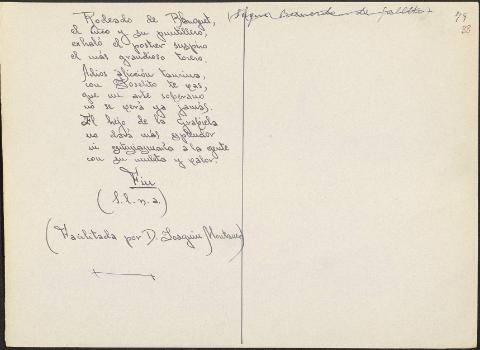 Rodeado de Blanquet,
el Cuco y su puntillero,
exhaló el postrer suspiro
el más grandioso torero.
Adios afición taurina,
con Joselito te vas,
que un arte soberano
no se verá ya jamás.
El hijo de la Grabiela
no dará más esplendor
ni entusiasmaría a la gente
con su muleta y valor.
Fin
(S. l. n. a.)
(Facilitada por D. Joaquín Montaner)
79
33